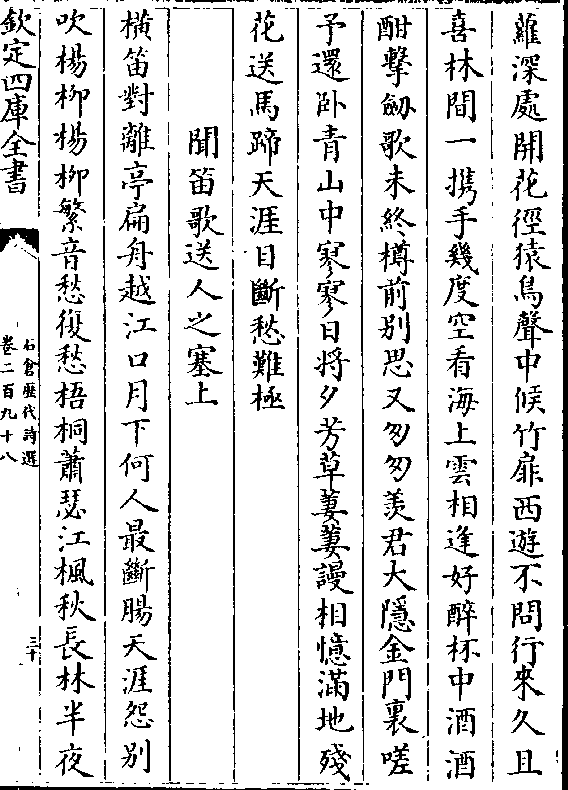 蘿深處開花徑猿鳥聲中候竹扉西遊不問行來久且
喜林間一攜手幾度空看海上雲相逢好醉杯中酒酒
酣擊劒歌未終樽前別思又匆匆羨君大隱金門裏嗟
予還卧青山中寥寥日將夕芳草萋萋謾相憶滿地殘
花送馬蹄天涯目斷愁難極
聞笛歌送人之塞上
橫笛對離亭扁舟越江口月下何人最斷腸天涯怨别
吹楊柳楊柳繁音愁復愁梧桐蕭瑟江楓秋長林半夜
欽定四庫全書
石倉歷代詩選
卷二百九十八
三十